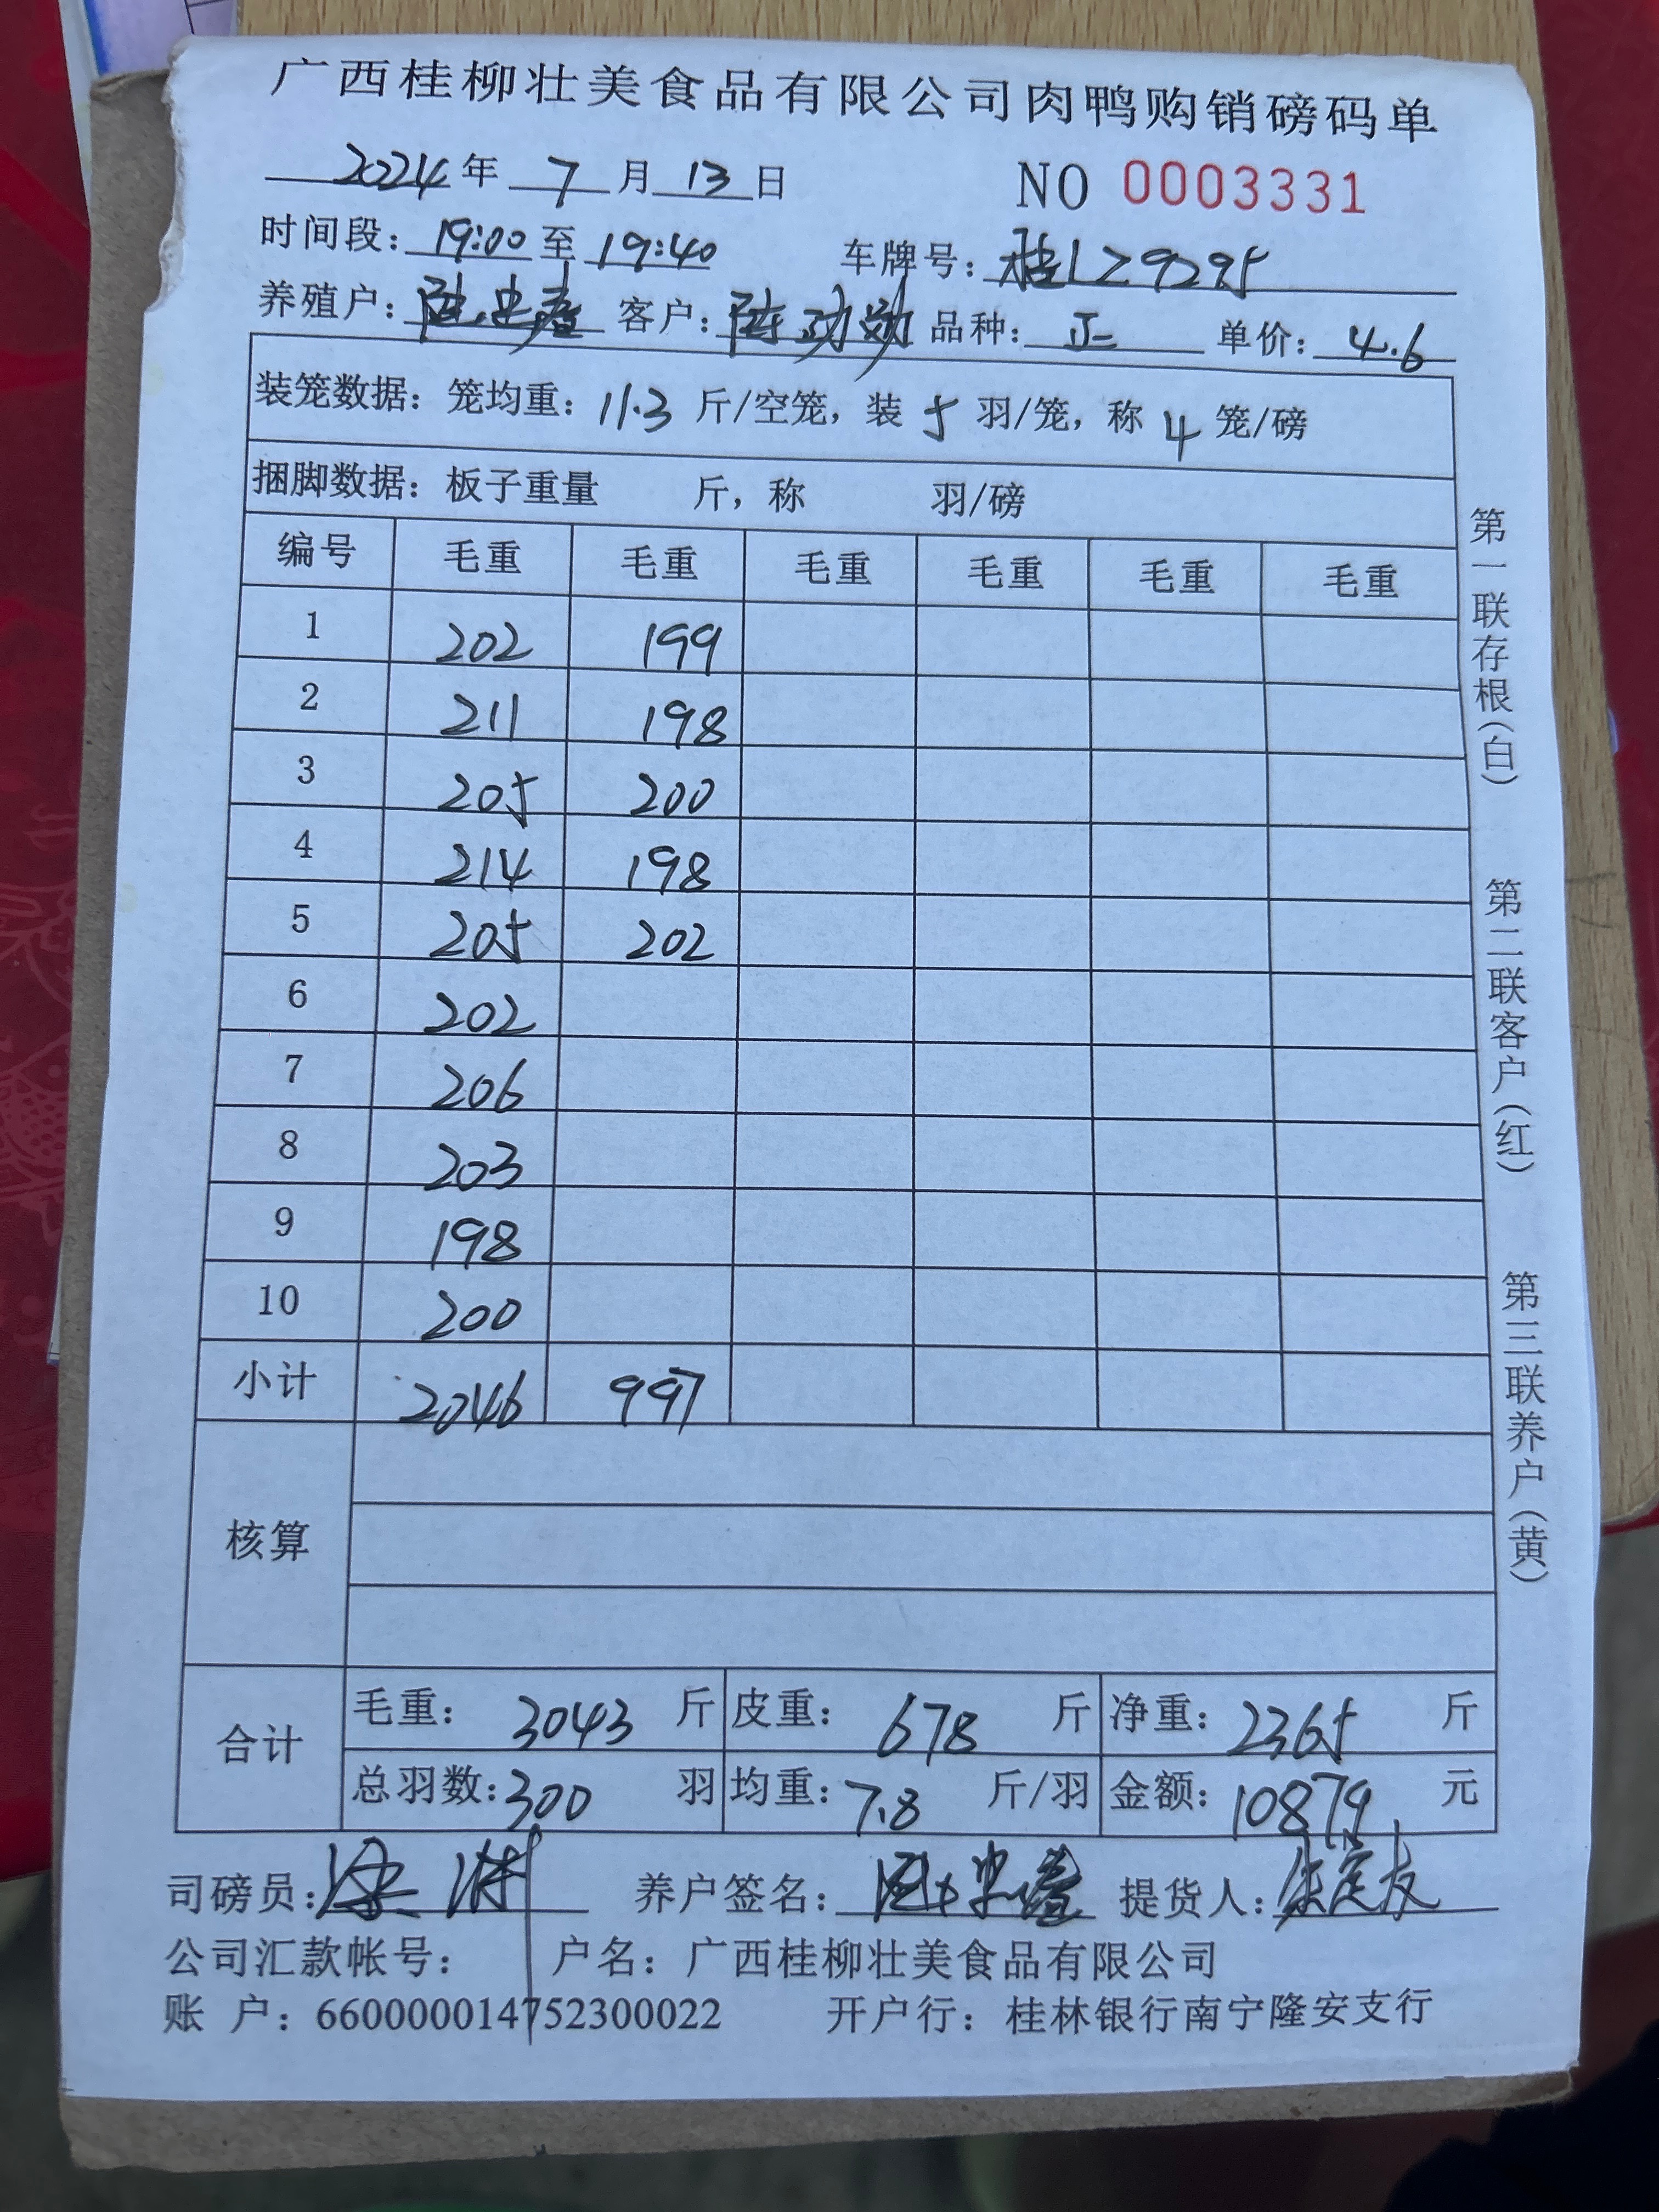 广西桂柳壮美食品有限公司肉鸭购销磅码单
2024年 7月13日 NO 0003331
时间段：19:00至19:40 车牌号：桂LZ9295
养殖户： 客户：陈动勋 品种：正 单价：4.6
装笼数据：笼均重：11.3斤/空笼，装5羽/笼，称4笼/磅
捆脚数据：板子重量 斤，称 羽/磅
编号 毛重 毛重 毛重 毛重 毛重 毛重
1 202 199
2 211 198
3 205 200
4 214 198
5 205 202
6 202
7 206
8 203
9 198
10 200
小计 2046 997
核算
合计 毛重：3043斤 皮重：678斤 净重：2365斤
总羽数：300羽 均重：7.8斤/羽 金额：10879元
司磅员： 养户签名： 提货人：
公司汇款帐号： 户名：广西桂柳壮美食品有限公司
账 户：660000014752300022 开户行：桂林银行南宁隆安支行
第一联存根（白）
第二联客户（红）
第三联养户（黄）